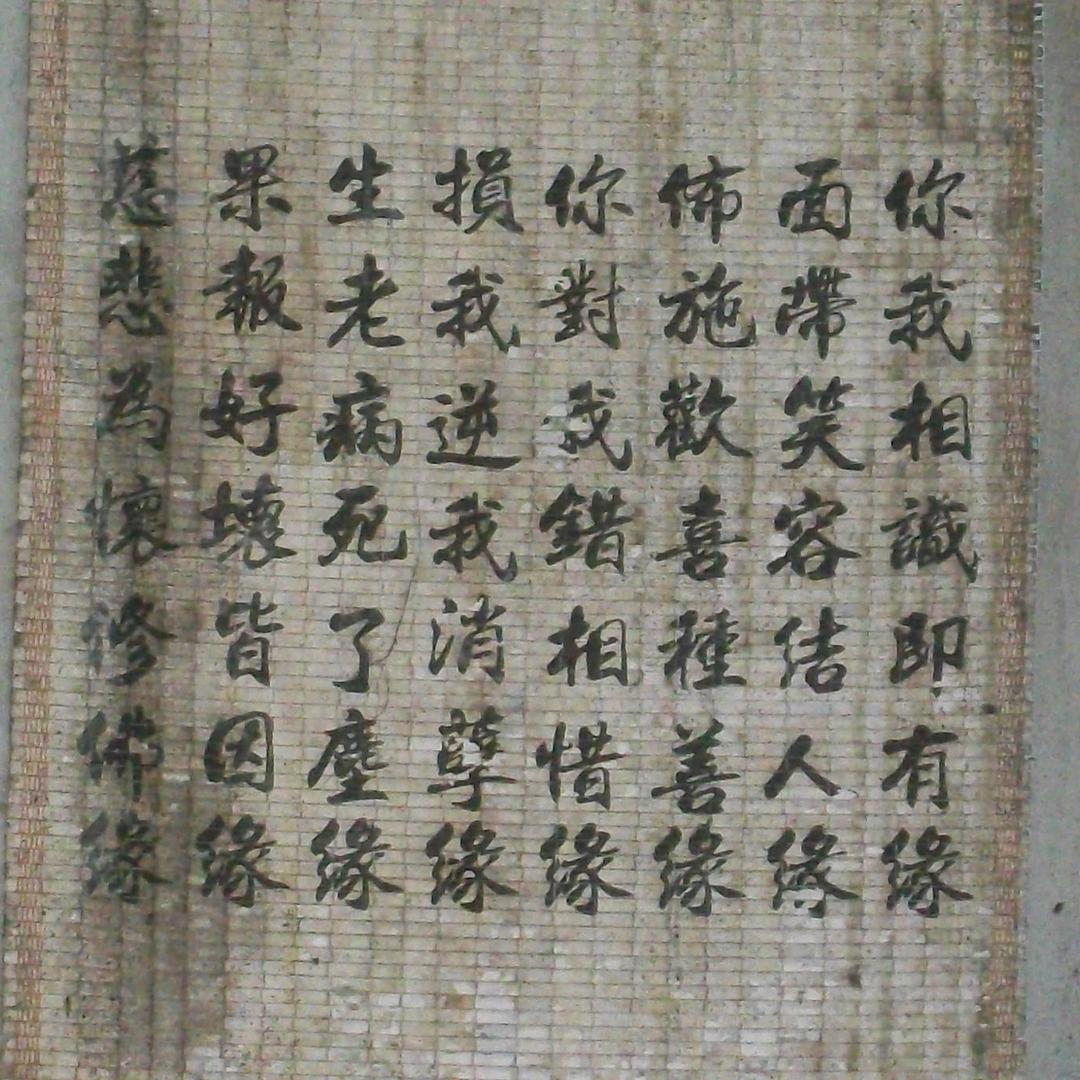 你我相識即有緣
面帶笑容结人緣
佈施歡喜種善緣
你對我錯相惜緣
損我逆我消孽緣
生老病死了塵緣
果報好壞皆因緣
慈悲為懷修佛緣